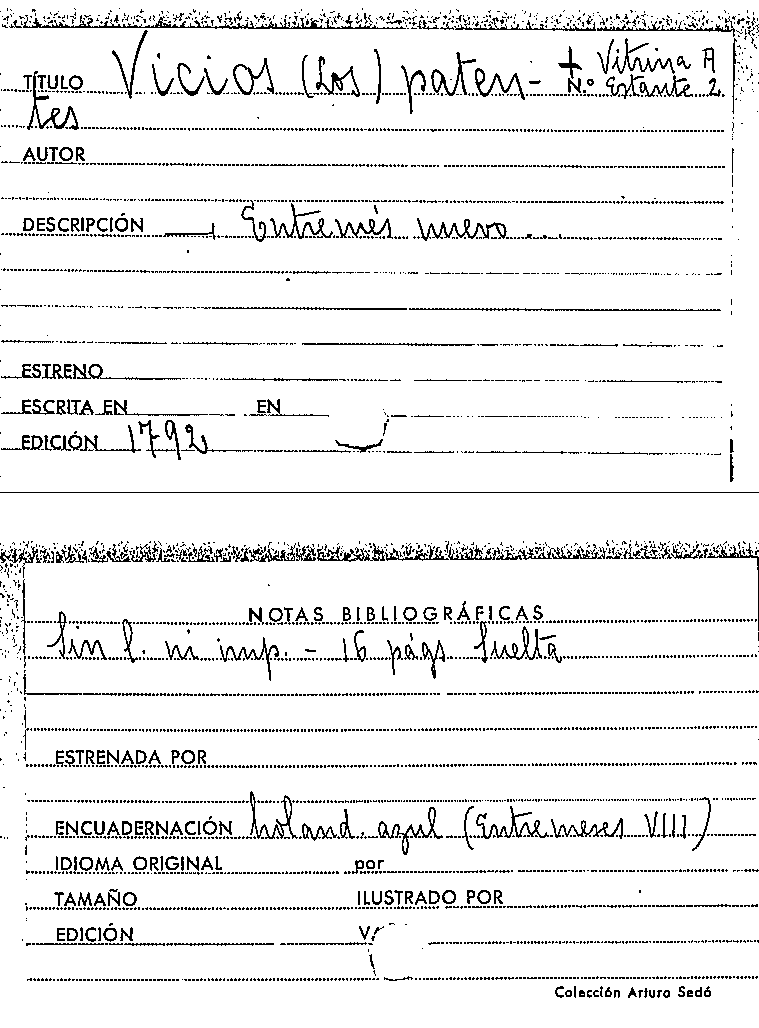 TÍTULO Vicios (Los) paten- + Vitrina A
tes N.º Estante 2
AUTOR
DESCRIPCIÓN Entremés nuevo...
ESTRENO
ESCRITA EN EN
EDICIÓN 1792
NOTAS BIBLIOGRÁFICAS
Sin l. ni imp. - 16 págs Suelta
ESTRENADA POR
ENCUADERNACIÓN holand. azul (Entremeses VIII)
IDIOMA ORIGINAL por
TAMAÑO ILUSTRADO POR
EDICIÓN
Colección Arturo Sedó